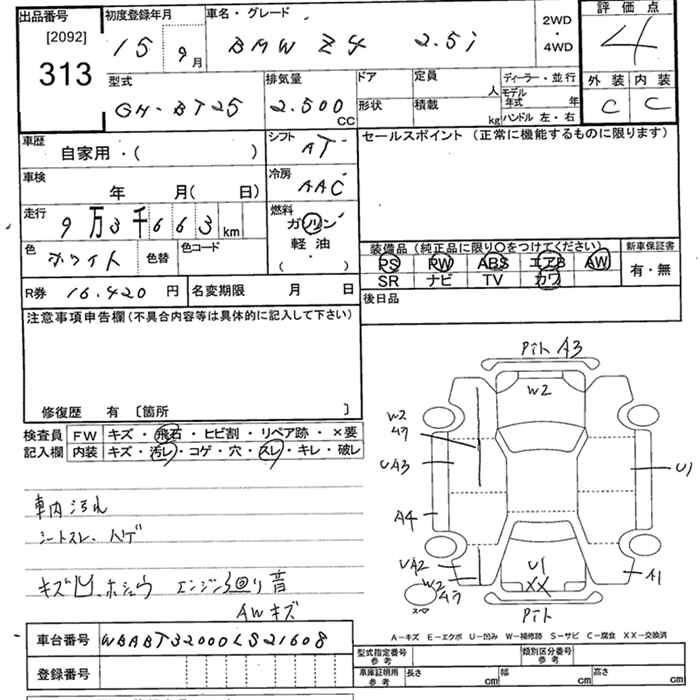 出品番号 初度登録年月 車名・グレード 2WD・4WD 評価点
[2092]
313 15 9月 BMW Z4 2.5i 4
型式 排気量 ドア 定員 人 ディーラー・並行 外装 内装
GH-BT25 2.500 CC 形状 積載 kg モデル年式 年 C C
ハンドル 左・右
車歴 シフト セールスポイント (正常に機能するものに限ります)
自家用・( ) AT
車検 冷房
年 月( 日) AAC
走行 燃料
9万3千663km ガソリン
軽油
・( )
色 色替 色コード
ホワイト
装備品 (純正品に限り○をつけてください) 新車保証書
PS PW ABS エアB AW 有・無
SR ナビ TV カワ
R券 16.420 円 名変期限 月 日 後日品
注意事項申告欄(不具合内容等は具体的に記入して下さい)
修復歴 有 〔箇所 〕
検査員 FW キズ・飛石・ヒビ割・リペア跡・×要
記入欄 内装 キズ・汚レ・コゲ・穴・スレ・キレ・破レ
車内汚れ
シートスレ、ハゲ
キズ凹、ホシュウ エンジン回り音
AWキズ
ピトA3
W2
W2
A7
UA3 U1
A4
UA2 U1 A1
W2 XX
A7
スペア
ピト
A-キズ E-エクボ U-凹み W-補修跡 S-サビ C-腐食 XX-交換済
車台番号 WBABT32000LS21608
登録番号
型式指定番号 参考 類別区分番号 参考
車庫証明用 参考 長さ cm 幅 cm 高さ cm